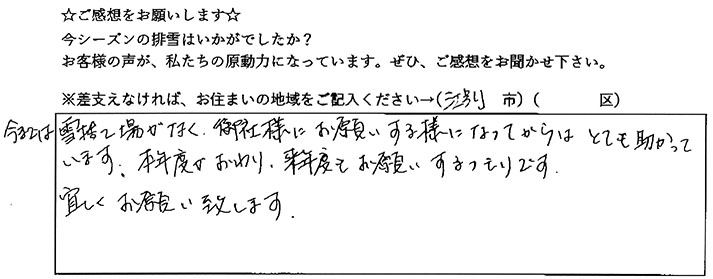 ☆ご感想をお願いします☆
今シーズンの排雪はいかがでしたか?
お客様の声が、私たちの原動力になっています。ぜひ、ご感想をお聞かせ下さい。
※差支えなければ、お住まいの地域をご記入ください→(江別 市)( 区)
今までは雪捨て場がなく、御社様にお願いする様になってからは とても助かって
います。本年度がおわり、来年度もお願いするつもりです.
宜しくお願い致します.